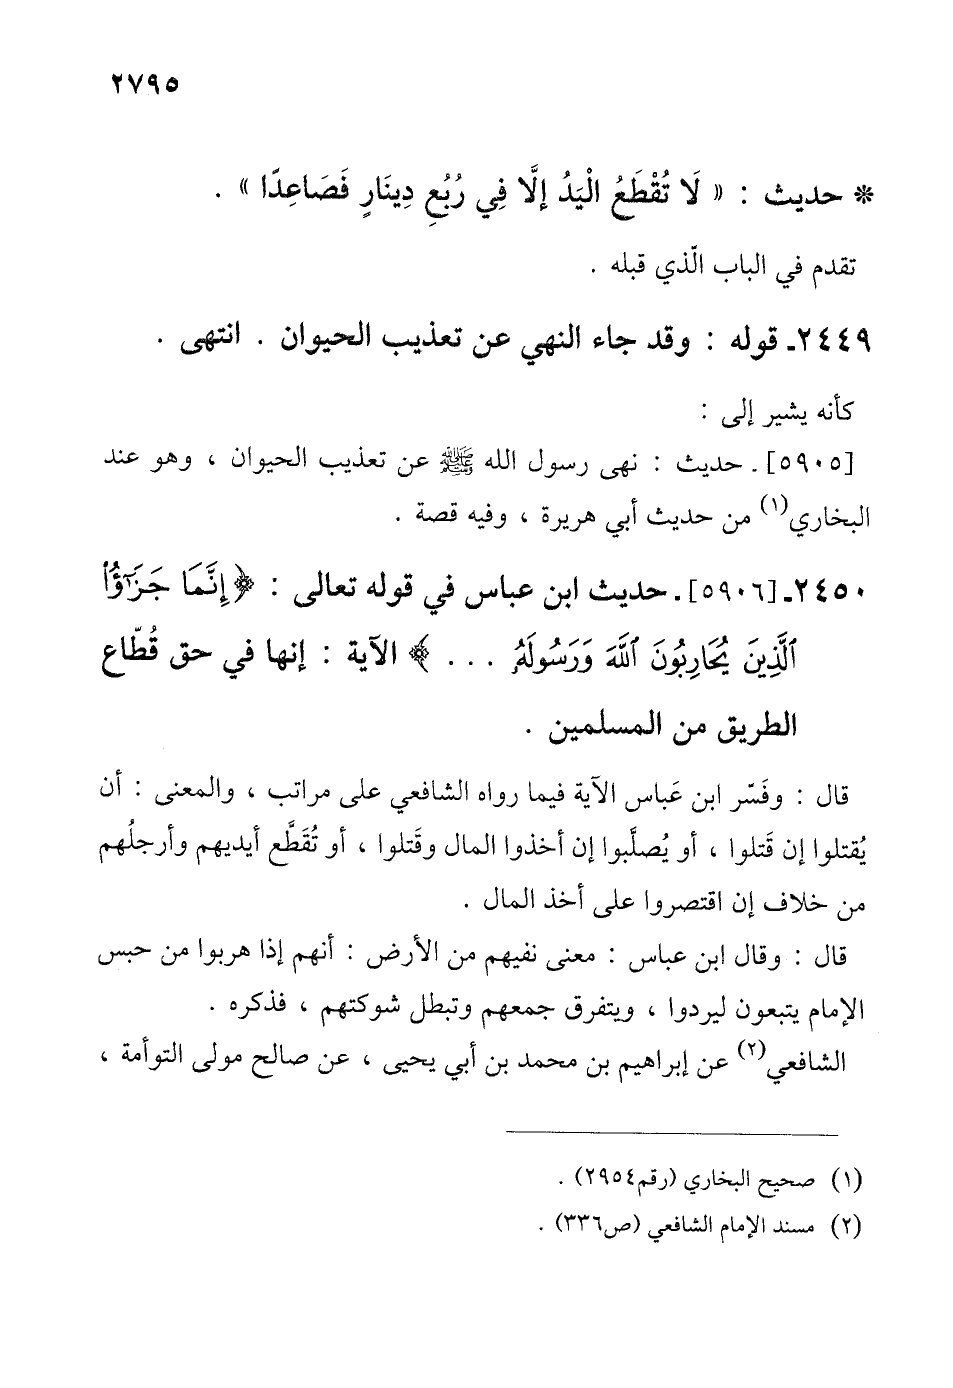 ٢٧٩٥
* حديث : « لَا تُقْطَعُ الْيَدُ إلَّا فِي رُبُعِ دِينَارٍ فَصَاعِدًا » .
تقدم في الباب الّذي قبله .
٢٤٤٩ـ قوله : وقد جاء النهي عن تعذيب الحيوان . انتهى .
كأنه يشير إلى :
[٥٩٠٥] . حديث : نهى رسول الله ﷺ عن تعذيب الحيوان ، وهو عند
البخاري(١) من حديث أبي هريرة ، وفيه قصة .
٢٤٥٠ـ [٥٩٠٦]. حديث ابن عباس في قوله تعالى : ﴿ إِنَّمَا جَزَٰٓؤُاْ
ٱلَّذِينَ يُحَارِبُونَ ٱللَّهَ وَرَسُولَهُۥ . . . ﴾ الآية : إنها في حق قُطّاع
الطريق من المسلمين .
قال : وفَسّر ابن عَباس الآية فيما رواه الشافعي على مراتب ، والمعنى : أن
يُقتلوا إن قَتلوا ، أو يُصلَّبوا إن أخذوا المال وقَتلوا ، أو تُقَطَّع أيديهم وأرجلُهم
من خلاف إن اقتصروا على أخذ المال .
قال : وقال ابن عباس : معنى نفيهم من الأرض : أنهم إذا هربوا من حبس
الإمام يتبعون ليردوا ، ويتفرق جمعهم وتبطل شوكتهم ، فذكره .
الشافعي(٢) عن إبراهيم بن محمد بن أبي يحيى ، عن صالح مولى التوأمة ،
(١) صحيح البخاري (رقم٢٩٥٤) .
(٢) مسند الإمام الشافعي (ص٣٣٦) .